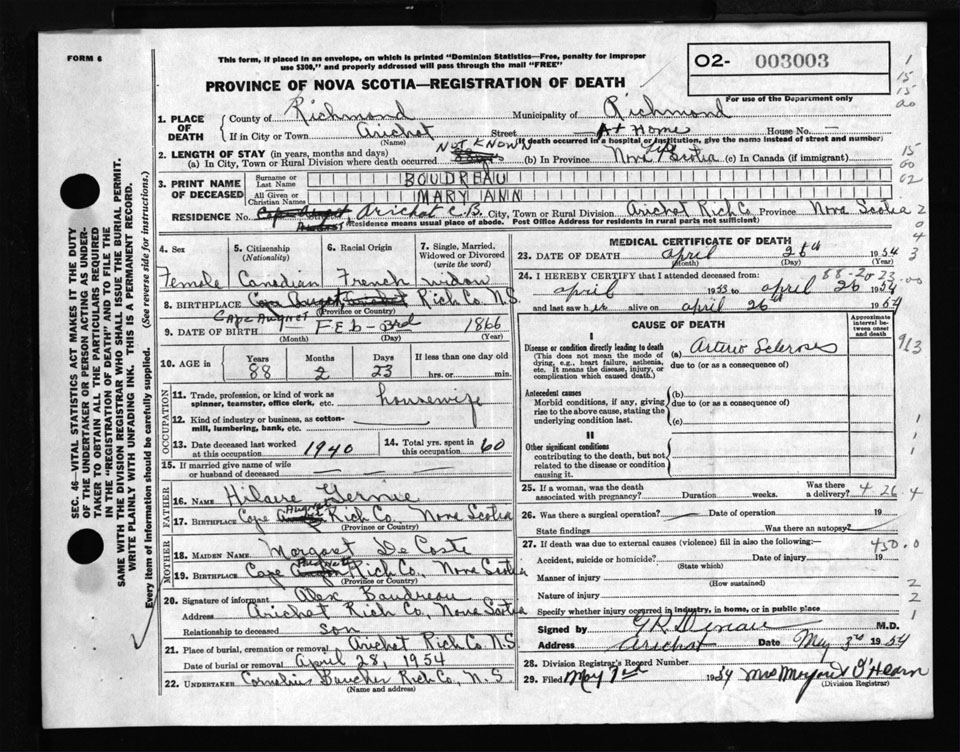 FORM 6
This form, if placed in an envelope, on which is printed "Dominion Statistics—Free, penalty for improper
use $300," and properly addressed will pass through the mail "FREE"
O2- 003003
For use of the Department only
PROVINCE OF NOVA SCOTIA—REGISTRATION OF DEATH
1. PLACE OF DEATH
County of Richmond Municipality of Richmond
If in City or Town Arichat Street At Home House No. —
(Name) (If death occurred in a hospital or institution, give the name instead of street and number)
2. LENGTH OF STAY (in years, months and days)
(a) In City, Town or Rural Division where death occurred NOT KNOWN (b) In Province Nova Scotia (c) In Canada (if immigrant)
3. PRINT NAME OF DECEASED
Surname or Last Name BOUDREAU
All Given or Christian Names MARY ANN
RESIDENCE No. Arichat C.B. City, Town or Rural Division Arichat Rich Co Province Nova Scotia
(Residence means usual place of abode. Post Office Address for rural parts not sufficient)
4. Sex 5. Citizenship (Nationality) 6. Racial Origin 7. Single, Married, Widowed or Divorced (write the word)
Female Canadian French widow
8. BIRTHPLACE Cape Auguet Rich Co. N.S.
(Province or Country)
9. DATE OF BIRTH FEB - 3rd 1866
(Month) (Day) (Year)
10. AGE in Years Months Days If less than one day old
88 2 23 hrs. or min.
OCCUPATION
11. Trade, profession, or kind of work as spinner, teamster, office clerk, etc. housewife
12. Kind of industry or business, as cotton-mill, lumbering, bank, etc.
13. Date deceased last worked at this occupation 1940 14. Total yrs. spent in this occupation 60
15. If married give name of wife or husband of deceased
FATHER
16. NAME Hilaire
17. BIRTHPLACE Cape Auguet Rich Co. Nova Scotia
(Province or Country)
MOTHER
18. MAIDEN NAME Margaret De Coste
19. BIRTHPLACE Cape Auguet Rich Co., Nova Scotia
(Province or Country)
20. Signature of informant Alex Boudreau
Address Arichat Rich Co, Nova Scotia
Relationship to deceased son
21. Place of burial, cremation or removal Arichat Rich Co. N.S
Date of burial or removal April 28, 1954
22. UNDERTAKER Cornelius Boucher Rich Co, N.S.
(Name and address)
MEDICAL CERTIFICATE OF DEATH
23. DATE OF DEATH April 26th 1954
(Month) (Day) (Year)
24. I HEREBY CERTIFY that I attended deceased from:
88-2-23
april 1953 to april 26 1954
and last saw h er alive on april 26th 1954
CAUSE OF DEATH
Approximate interval between onset and death
I
Disease or condition directly leading to death
(This does not mean the mode of dying, e.g., heart failure, asthenia, etc. It means the disease, injury, or complication which caused death.)
(a) Arterio Sclerosis
due to (or as a consequence of)
Antecedent causes
Morbid conditions, if any, giving rise to the above cause, stating the underlying condition last.
(b)
due to (or as a consequence of)
(c)
II
Other significant conditions
contributing to the death, but not related to the disease or condition causing it.
25. If a woman, was the death associated with pregnancy? Duration weeks. Was there a delivery? 4 26 4
26. Was there a surgical operation? Date of operation 19
State findings Was there an autopsy?
27. If death was due to external causes (violence) fill in also the following:— 450.0
Accident, suicide or homicide? Date of injury 19
(State which)
Manner of injury
(How sustained)
Nature of injury
Specify whether injury occurred in industry, in home, or in public place
Signed by M.D.
Address Arichat Date May 3rd 1954
28. Division Registrar's Record Number
29. Filed May 1954 O'Hearn
(Division Registrar)
SEC. 46—VITAL STATISTICS ACT MAKES IT THE DUTY
OF THE UNDERTAKER OR PERSON ACTING AS UNDER-
TAKER TO OBTAIN ALL THE PARTICULARS REQUIRED
IN THE "REGISTRATION OF DEATH" AND TO FILE THE
SAME WITH THE DIVISION REGISTRAR WHO SHALL ISSUE THE BURIAL PERMIT.
WRITE PLAINLY WITH UNFADING INK. THIS IS A PERMANENT RECORD.
Every item of Information should be carefully supplied. (See reverse side for instructions.)